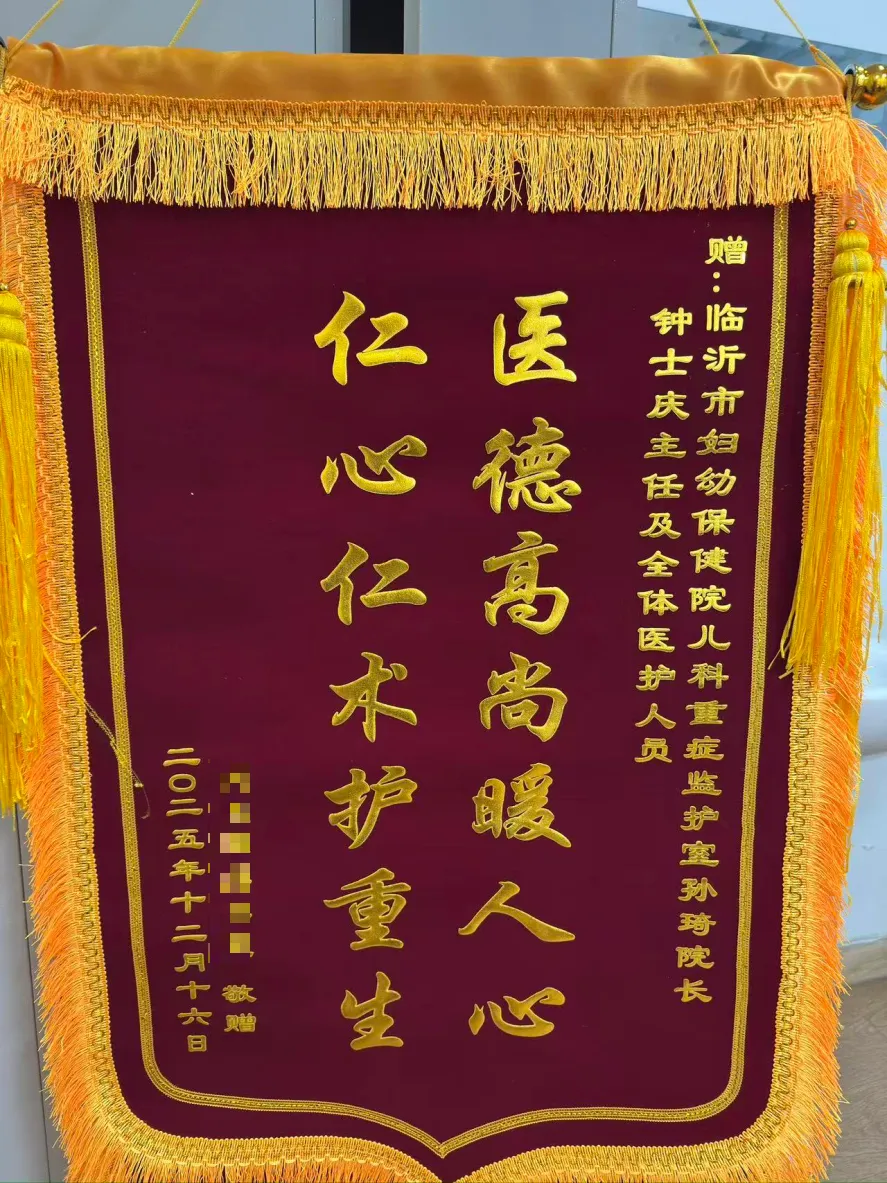 赠:临沂市妇幼保健院儿科重症监护室孙琦院长
钟士庆主任及全体医护人员
医德高尚暖人心
仁心仁术护重生
敬赠
二〇二五年十二月十六日